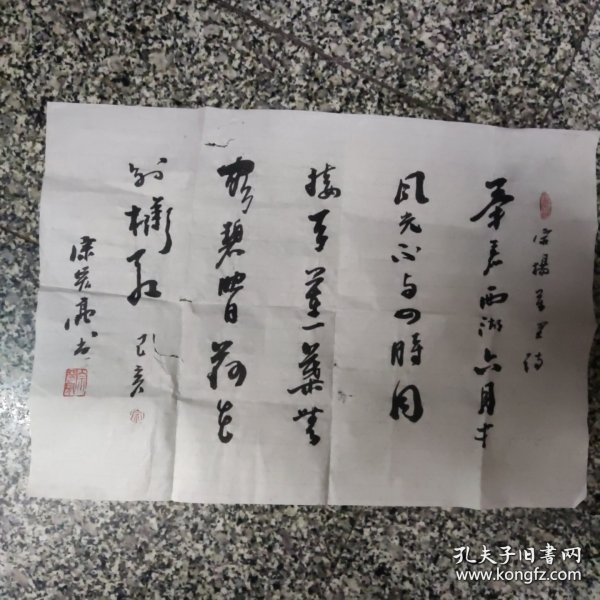 宋楊萬里诗
畢竟西湖六月中
风光不与四時同
接天蓮葉無
窮碧映日荷花
别樣红 己亥
亮书
孔夫子旧书网
www.kongfz.com